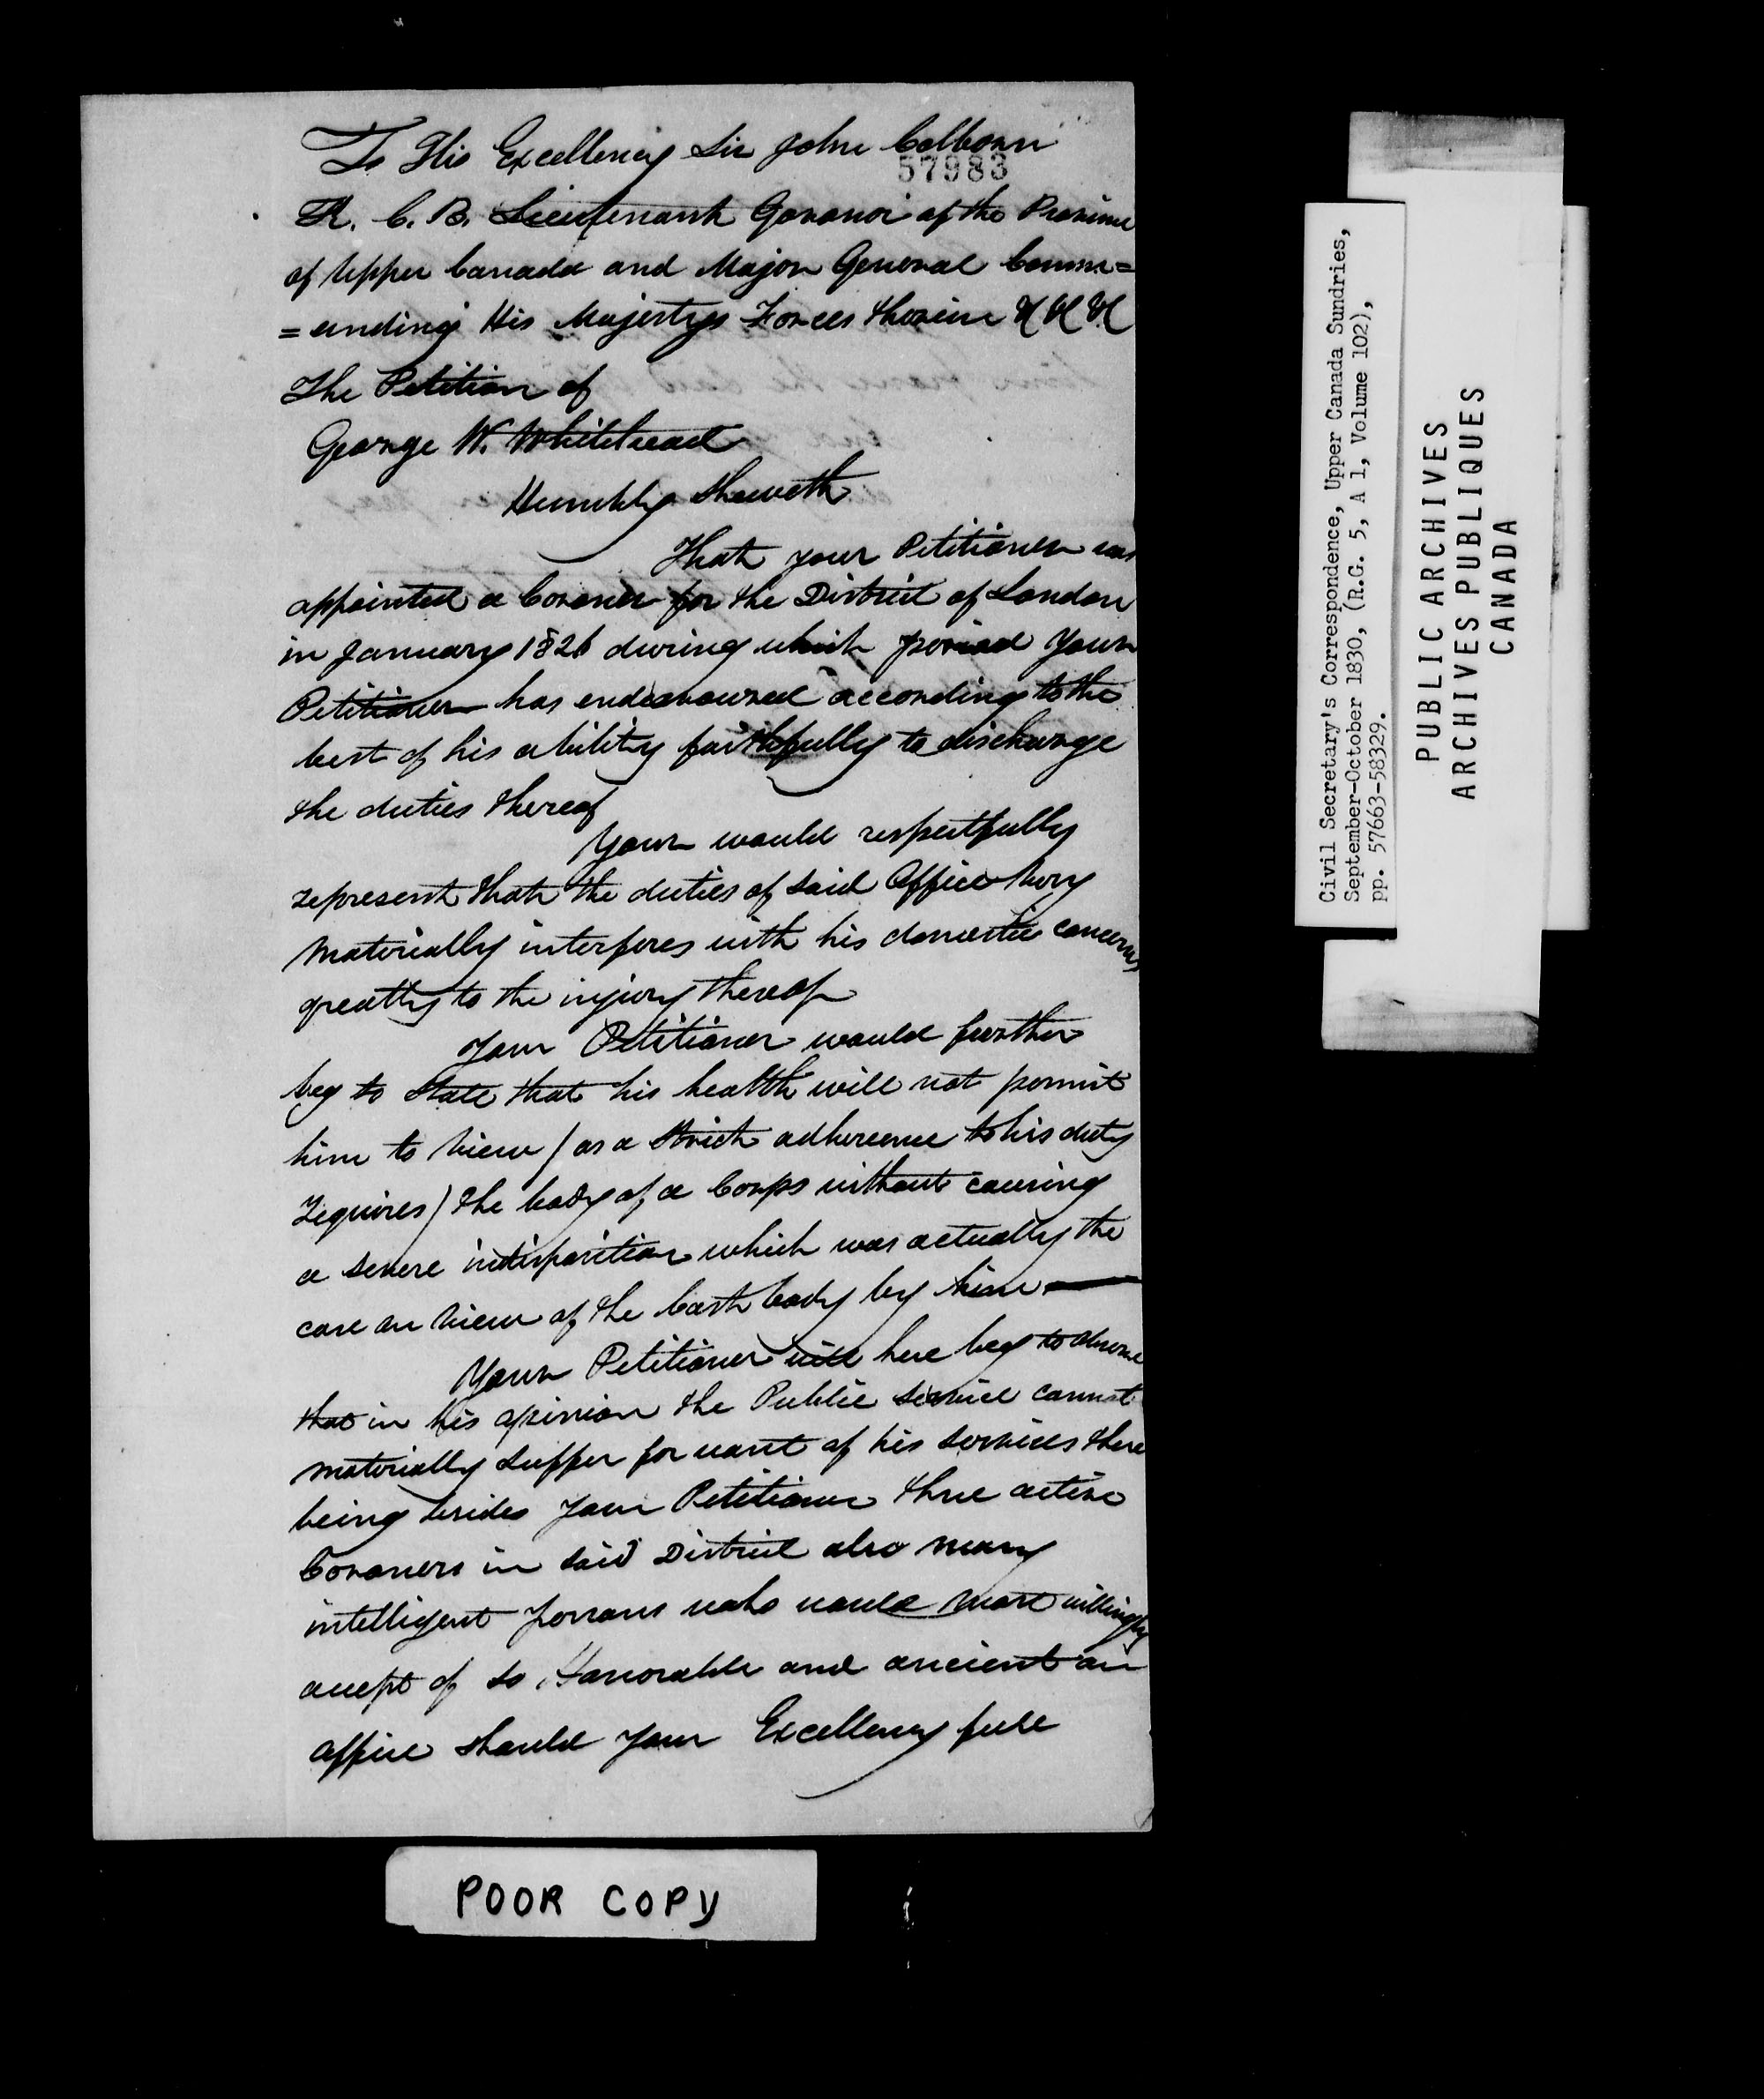 To His Excellency Sir John Colborn
57983
K. C. B. Lieutenant Govonor of the Province
of Upper Canada and Major General Comm=
=anding His Majestys Forces therein &c &c &c
The Petition of
George W. Whitehead
Humbly Sheweth
That your Petitioner was
appointed a Coroner for the District of London
in January 1826 during which period Your
Petitioner has endeavoured according to the
best of his ability faithfully to discharge
the duties thereof
Your would respectfully
represent that the duties of said Office very
materially interferes with his domestic concerns
greatly to the injury thereof
Your Petitioner would further
beg to state that his health will not permit
him to view (as a strict adherence to his duty
requires) the body of a Corps without causing
a severe indisposition which was actually the
case on view of the last body by him
Your Petitioner will here beg to observe
that in his opinion the Public service cannot
materially suffer for want of his services there
being besides your Petitioner three active
Coroners in said District also many
intelligent persons who would most willingly
accept of so Honorable and ancient an
office should your Excellency feel
POOR COPY
Civil Secretary's Correspondence, Upper Canada Sundries,
September-October 1830, (R.G. 5, A 1, Volume 102),
pp. 57663-58329.
PUBLIC ARCHIVES
ARCHIVES PUBLIQUES
CANADA